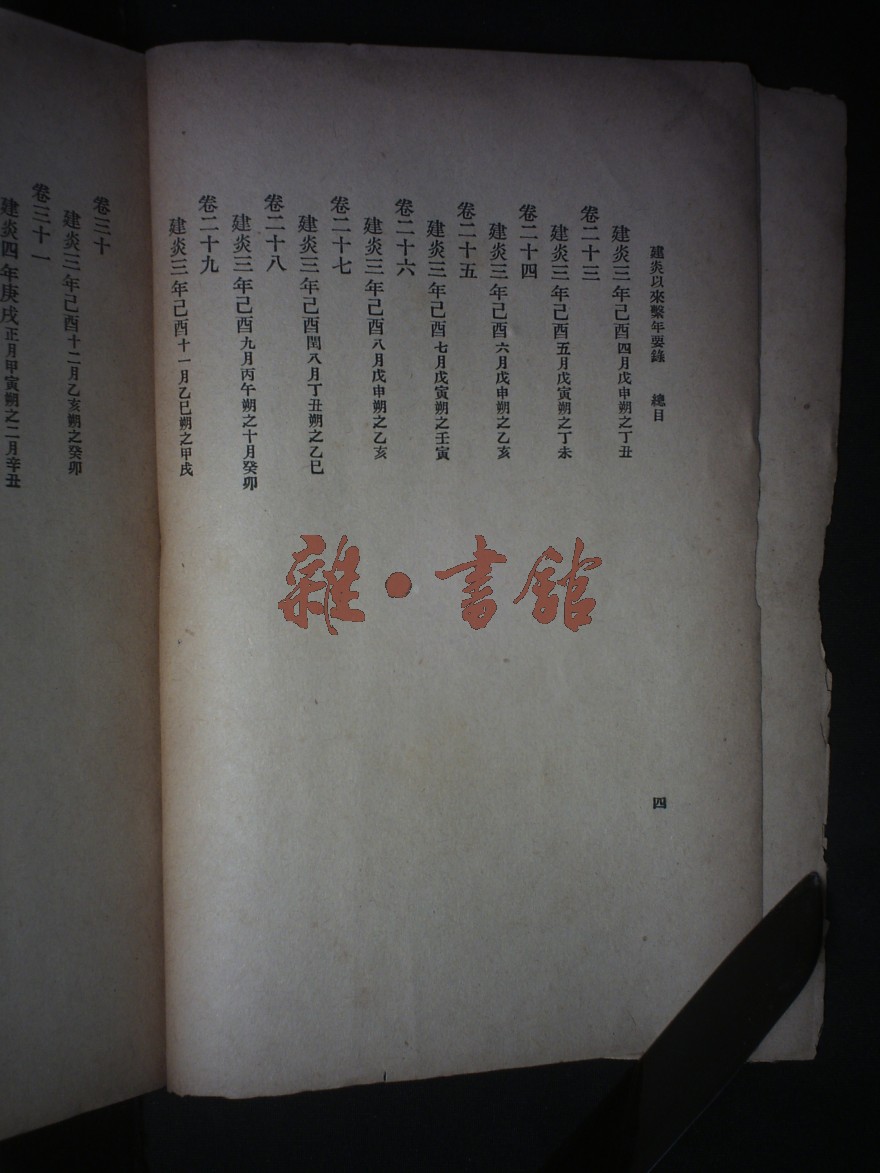 建炎以來繫年要錄　總目
四
建炎三年己酉四月戊申朔之丁丑
卷二十三
建炎三年己酉五月戊寅朔之丁未
卷二十四
建炎三年己酉六月戊申朔之乙亥
卷二十五
建炎三年己酉七月戊寅朔之壬寅
卷二十六
建炎三年己酉八月戊申朔之乙亥
卷二十七
建炎三年己酉閏八月丁丑朔之乙巳
卷二十八
建炎三年己酉九月丙午朔之十月癸卯
卷二十九
建炎三年己酉十一月乙巳朔之甲戌
卷三十
建炎三年己酉十二月乙亥朔之癸卯
卷三十一
建炎四年庚戌正月甲寅朔之二月辛丑
雜·書館